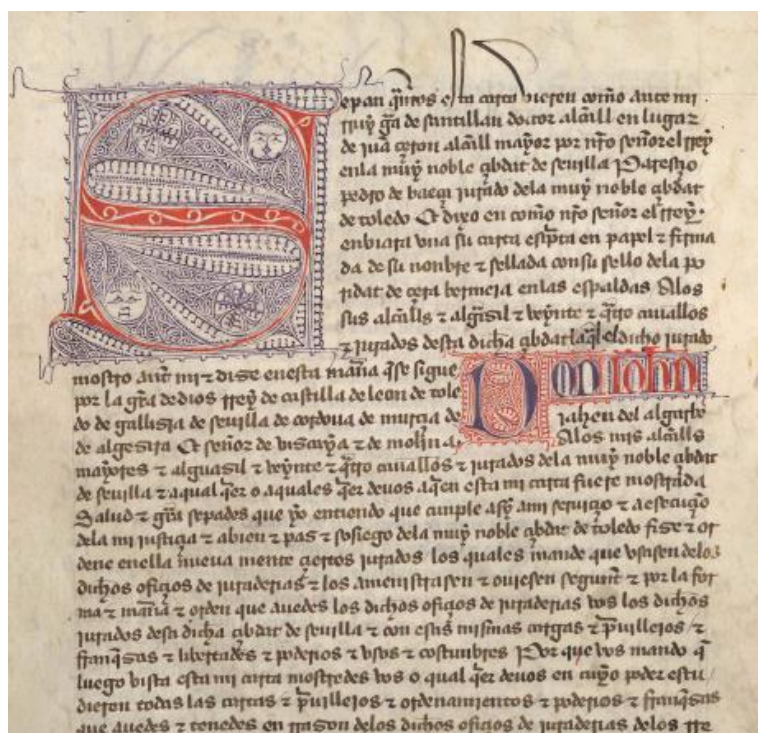 Sepan q̃ntos esta carta vieren como ante mi
rruy gr̃a de santillan doctor alcall en lugar
de jua çeron alcall mayor por nr̃o señor el rrey
en la muy noble çibdat de seuilla Paresçio
pedro de baeça jurado dela muy noble çibdat
de toledo Et dixo en como nr̃o señor el rrey
enbiara vna su carta esp̃ta en papel τ firma
da de su nonbre τ sellada con su sello dela po
ridat de çera bermeja enlas espaldas Alos
sus alcalls τ alg̃sil τ veynte τ q̃tro cauallos
τ jurados desta dicha çibdat laq̃l el dicho jurado
mostro ante mi τ dise enesta man̄a q̃ se sigue DON IOHN
por la gr̃a de dios rrey de castilla de leon de tole
do de gallisia de seuilla de cordoua de murcia de jahen del algarbe
de algesira Et señor de viscaya τ de molina Alos mis alcalls
mayores τ alguasil τ veynte τ q̃tro cauallos τ jurados dela muy noble çibdat
de seuilla τ a qual q̃er o a quales q̃er de vos a q̃en esta mi carta fuere mostrada
Salud τ gr̃a sepades que yo entiendo que cunple asy a mi seruiçio τ a esecuçio
dela mi justiçia τ a bien τ pas τ sosiego dela muy noble çibdat de toledo fise τ or
dene enella nueua mente çiertos jurados los quales mande que vsasen delos
dichos ofiçios de juraderias τ los amenistrasen τ ouiesen segunt τ por la for
ma τ man̄a τ orden que auedes los dichos ofiçios de juraderias vos los dichos
jurados desa dicha çibdat de seuilla τ con esas mismas cargas τ p̃uillejos τ
franq̃sas τ libertades τ poderios τ vsos τ costunbres Por que vos mando q̃
luego vista esta mi carta mostredes vos o qual q̃er de vos en cuyo poder estu
dieren todas las cartas τ p̃uillejos τ ordenamientos τ poderios τ franq̃sas
que auedes τ tenedes en rrason delos dichos ofiçios de juraderias delos rre